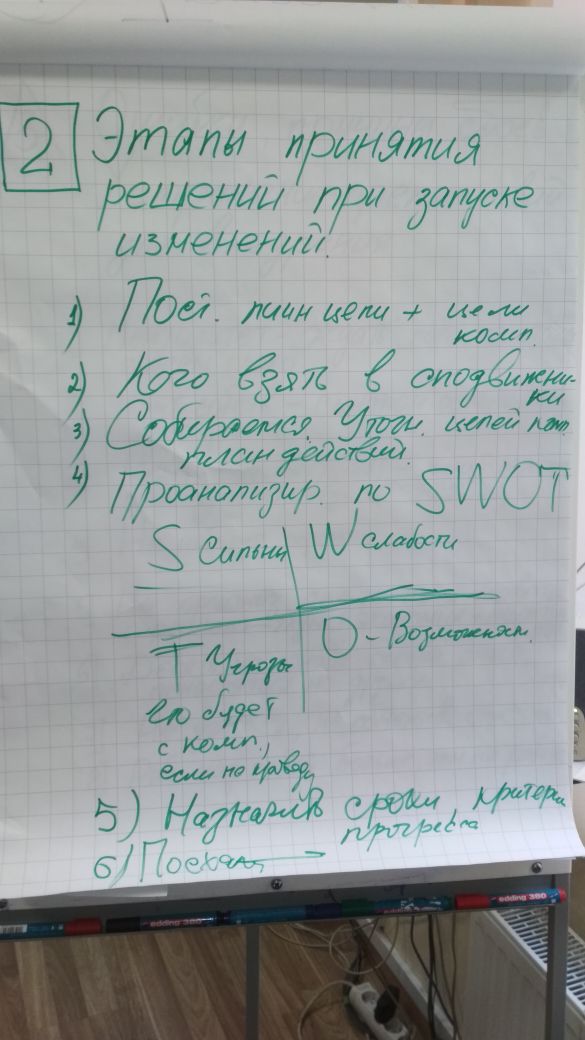 2 Этапы принятия
решений при запуске
изменений.
1) Пост. личн цели + цели
комп.
2) Кого взять в сподвижни-
ки
3) Собираемся. Уточн. целей
план действий.
4) Проанализир. по SWOT
S Сильны W слабости
T Угрозы O - Возможност.
что будет
с комп.,
если не проведу
5) Назначить сроки, критерии
прогресса
6) Поехали
edding 380
edding 380